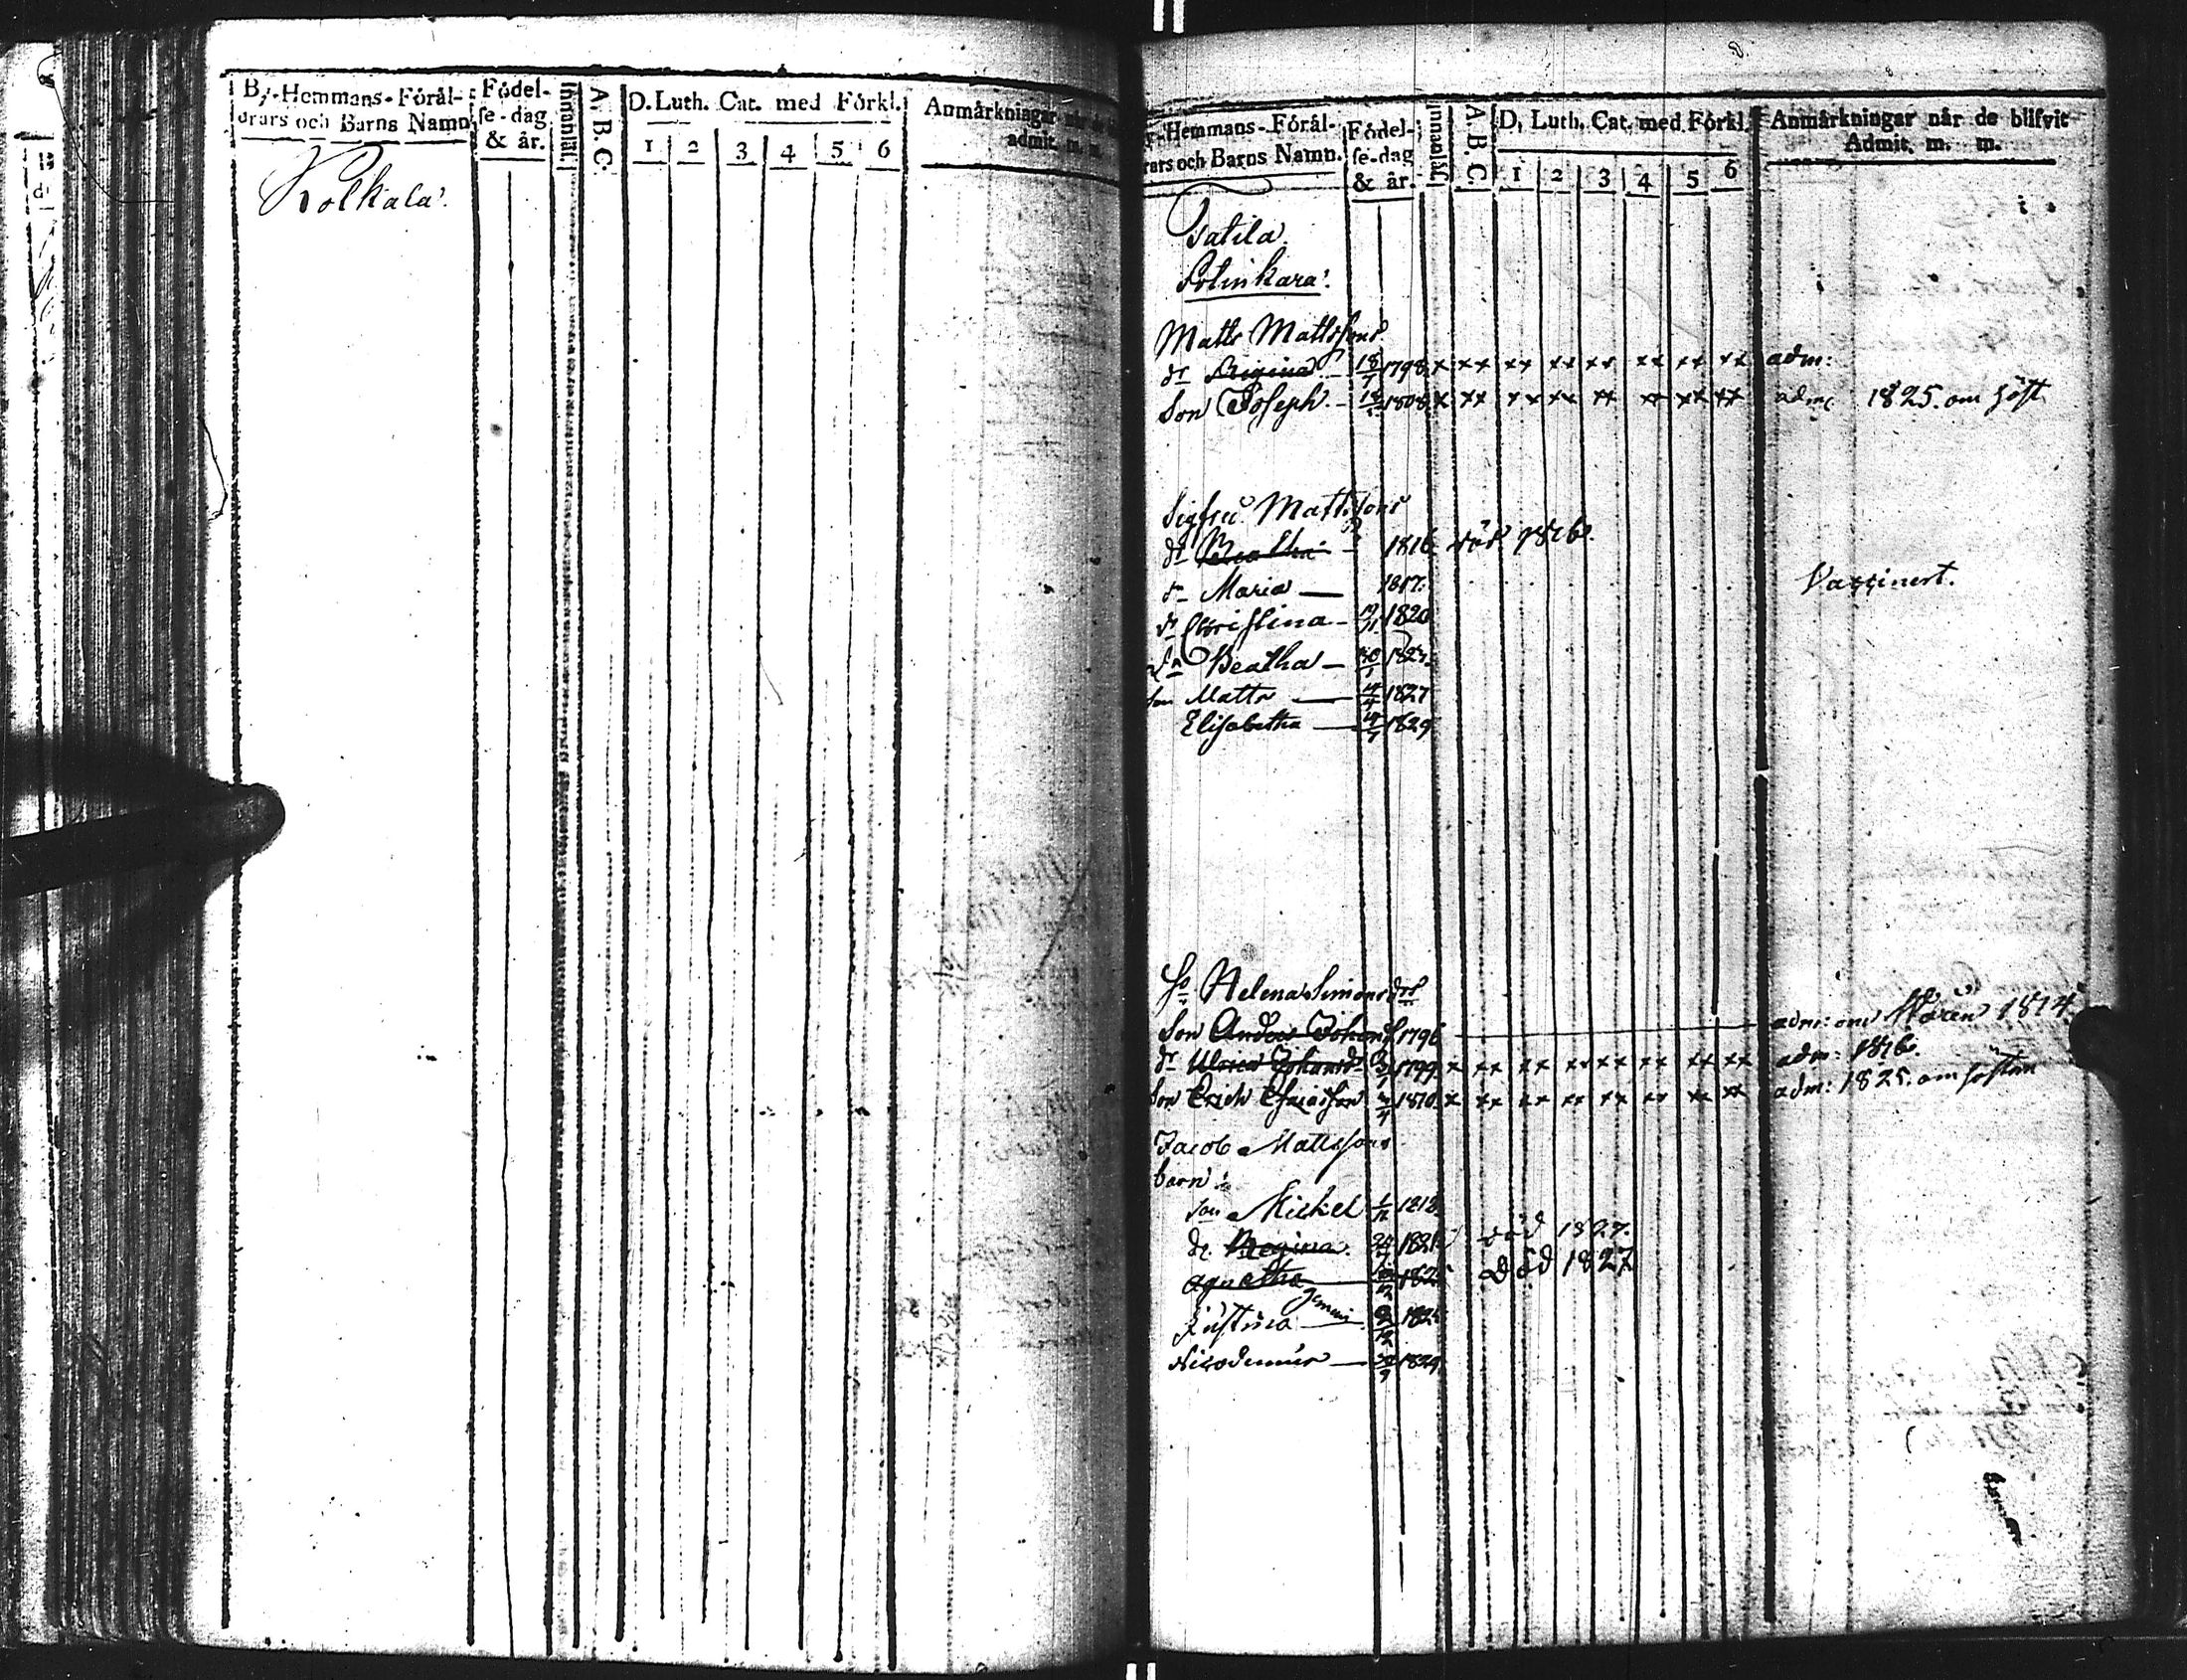 By-Hemmans-Förål-
drars och Barns Namn
Födel-
se-dag
& år.
Innanläs.
A. B. C.
D. Luth. Cat. med Förkl.
1 2 3 4 5 6
Anmärkningar når de
admit. m. m.
Kolkala.
Hemmans-Förål-
rars och Barns Namn.
Födel-
se-dag
& år.
Innanläs.
A. B. C.
D. Luth. Cat. med Förkl.
1 2 3 4 5 6
Anmärkningar når de blifvit
Admit. m. m.
Matts Mattssons
dr Regina 1798. x xx xx xx xx xx xx xx adm:
Son Joseph 1808 x xx xx xx xx xx xx xx adm. 1825. om höst
Sigfrid Mattssons
dr Beatha 1816. död 1816.
dr Maria 1817. Vaccinert.
dr Christina 1820
dr Beatha
son Matts 1827
Elisabetha 1829
Helena Simonsdrs
Son Anders Johans 1796 adm: om Wåren 1814
dr Ulrica Johansdr 1799. x xx xx xx xx xx xx xx adm: 1816.
Son Erich 1810. x xx xx xx xx xx xx xx adm: 1825. om hösten
Jacob Mattssons
barn:
son Mickel 1818
dr. Regina. 1821 död 1827.
Agnetha Död 1827
Justina
Nicodemus 1829